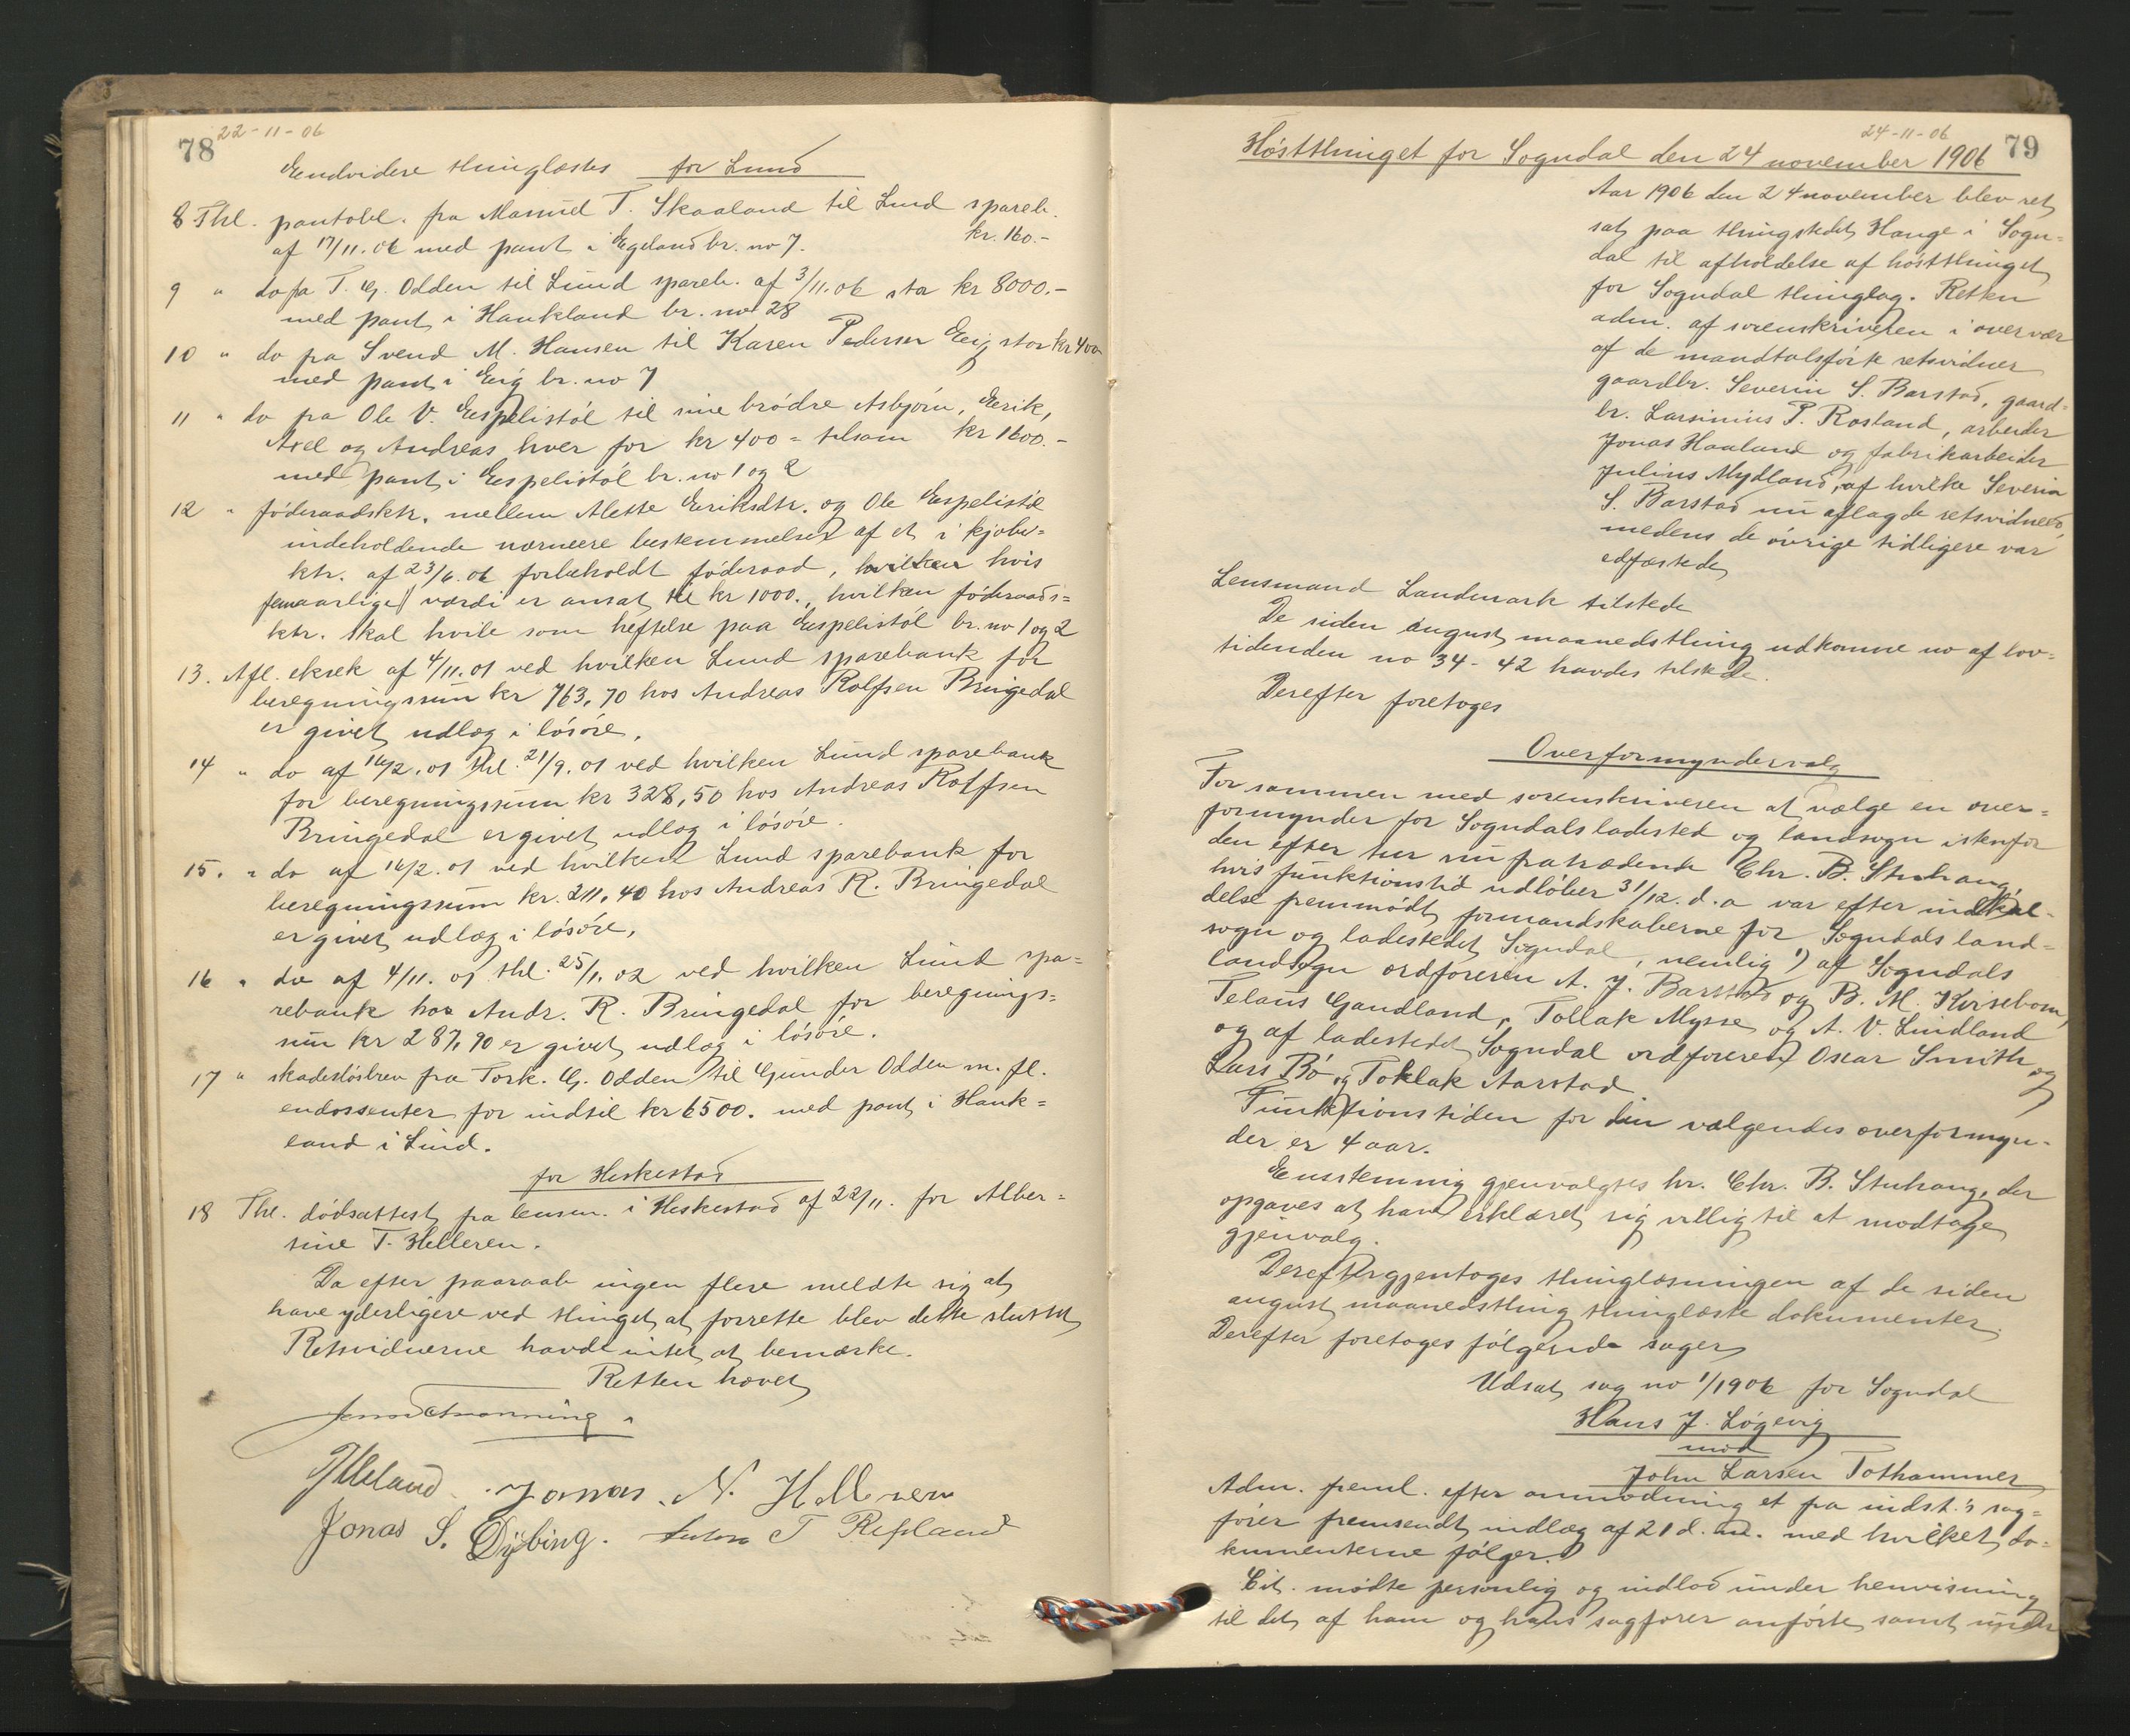 78
22-11-06
Endvidere thinglæstes for Lund
8 Thl. pantobl. fra Manuel T. Skaaland til Lund spareb.
af 17/11.06 med pant i Egeland br. no 7. kr. 160.-
9 " do fra T. G. Odden til Lund spareb. af 3/11.06 stor kr 8000.-
med pant i Haukland br. no 28
10 " do fra Svend M. Hansen til Karen Pedersen Eeig stor kr 400
med pant i Eeig br. no 7
11 " do fra Ole V. Eespelistöl til sine brödre Asbjørn, Eerik,
Axel og Andreas hver for kr 400 = tilsam kr 1600.-
med pant i Eespelistöl br. no 1 og 2
12 " föderaadsktr. mellem Alette Eeriksdtr. og Ole Eespelistöl
indeholdende nærmere bestemmelser af et i kjöbe-
ktr. af 23/6.06 forbeholdt föderaad, hvilken hvis
femaarlige værdi er ansat til kr 1000., hvilken föderaads=
ktr. skal hvile som heftelse paa Eespelistöl br. no 1 og 2
13. Afl. eksek af 4/11.01 ved hvilken Lund sparebank for
beregningssum kr 763,70 hos Andreas Rolfsen Bringedal
er givet udlæg i lösöre.
14 " do af 16/2.01 thl. 21/9.01 ved hvilken Lund sparebank
for beregningssum kr 328,50 hos Andreas Rolfsen
Bringedal er givet udlæg i lösöre.
15. " do af 16/2.01 ved hvilken Lund sparebank for
beregningssum kr. 211,40 hos Andreas R. Bringedal
er givet udlæg i lösöre.
16 " do af 4/11.01 thl. 25/1.02 ved hvilken Lund spa=
rebank hos Andr. R. Bringedal for beregnings=
sum kr 287,70 er givet udlæg i lösöre.
17 " skadeslösbrev fra Tork. G. Odden til Gunder Odden m. fl.
endossenter for indtil kr 6500. med pant i Hauk=
land i Lund.
for Heskestad
18 Thl. dödsattest fra lensm. i Heskestad af 22/11. for Alber=
tine T. Helleren.
Da efter paaraab ingen flere meldte sig at
have yderligere ved thinget at forrette blev dette sluttet
Retsvidnerne havde intet at bemærke.
Retten hævet
Jonas N. Helleren
Jonas S. Dybing. T Refsland
24-11-06
79
Høstthinget for Sogndal den 24 november 1906
Aar 1906 den 24 november blev ret
sat paa thingstedet Hauge i Sogn=
dal til afholdelse af höstthinget
for Sogndal thinglag. Retten
adm. af sorenskriveren i overvær
af de mandtalsförte retsvidner
gaardbr. Severin S. Barstad, gaard=
br. Larsinius P. Rosland, arbeider
Jonas Haaland og fabrikarbeider
Julius Mydland, af hvilke Severin
S. Barstad nu aflagde retsvidneed,
medens de övrige tidligere var
edfæstede
Lensmand Landmark tilstede
De siden august maanedsthing udkomne no af lov=
tidenden no 34-42 havdes tilstede.
Derefter foretoges
Overformyndervalg
For sammen med sorenskriveren at vælge en over=
formynder for Sogndals ladested og landsogn istenfor
den efter tur nu fratrædende Chr. B. Stuhaug,
hvis funktionstid udlöber 31/12. d. a var efter indkal-
delse fremmödt formandskaberne for Sogndals land=
sogn og ladestedet Sogndal, nemlig 1) af Sogndals
landsogn ordföreren A. J. Barstad og B. M. Kirsebom,
Telaus Gaudland, Tollak Mysse og A. V. Lindland
og af ladestedet Sogndal ordföreren Oscar Smith og
Lars Bö og Tollak Aarstad
Funktionstiden for den valgendes overformyn-
der er 4 aar.
Eenstemmig gjenvalgtes hr. Chr. B. Stuhaug, der
opgaves at have erklæret sig villig til at modtage
gjenvalg.
Derefter gjentoges thinglæsningen af de siden
august maanedsthing thinglæste dokumenter.
Derefter foretoges fölgende sager
Udsat sag no 1/1906 for Sogndal
Hans J. Lögevig
mod
John Larsen Tothammer
Adm. freml. efter anmodning et fra indst.'s sag=
förer fremsendt indlæg af 21 d. m. med hvilket do=
kumenterne fölger.
Cit. mödte personlig og indlod under henvisning
til det af ham og hans sagförer anförte samt under